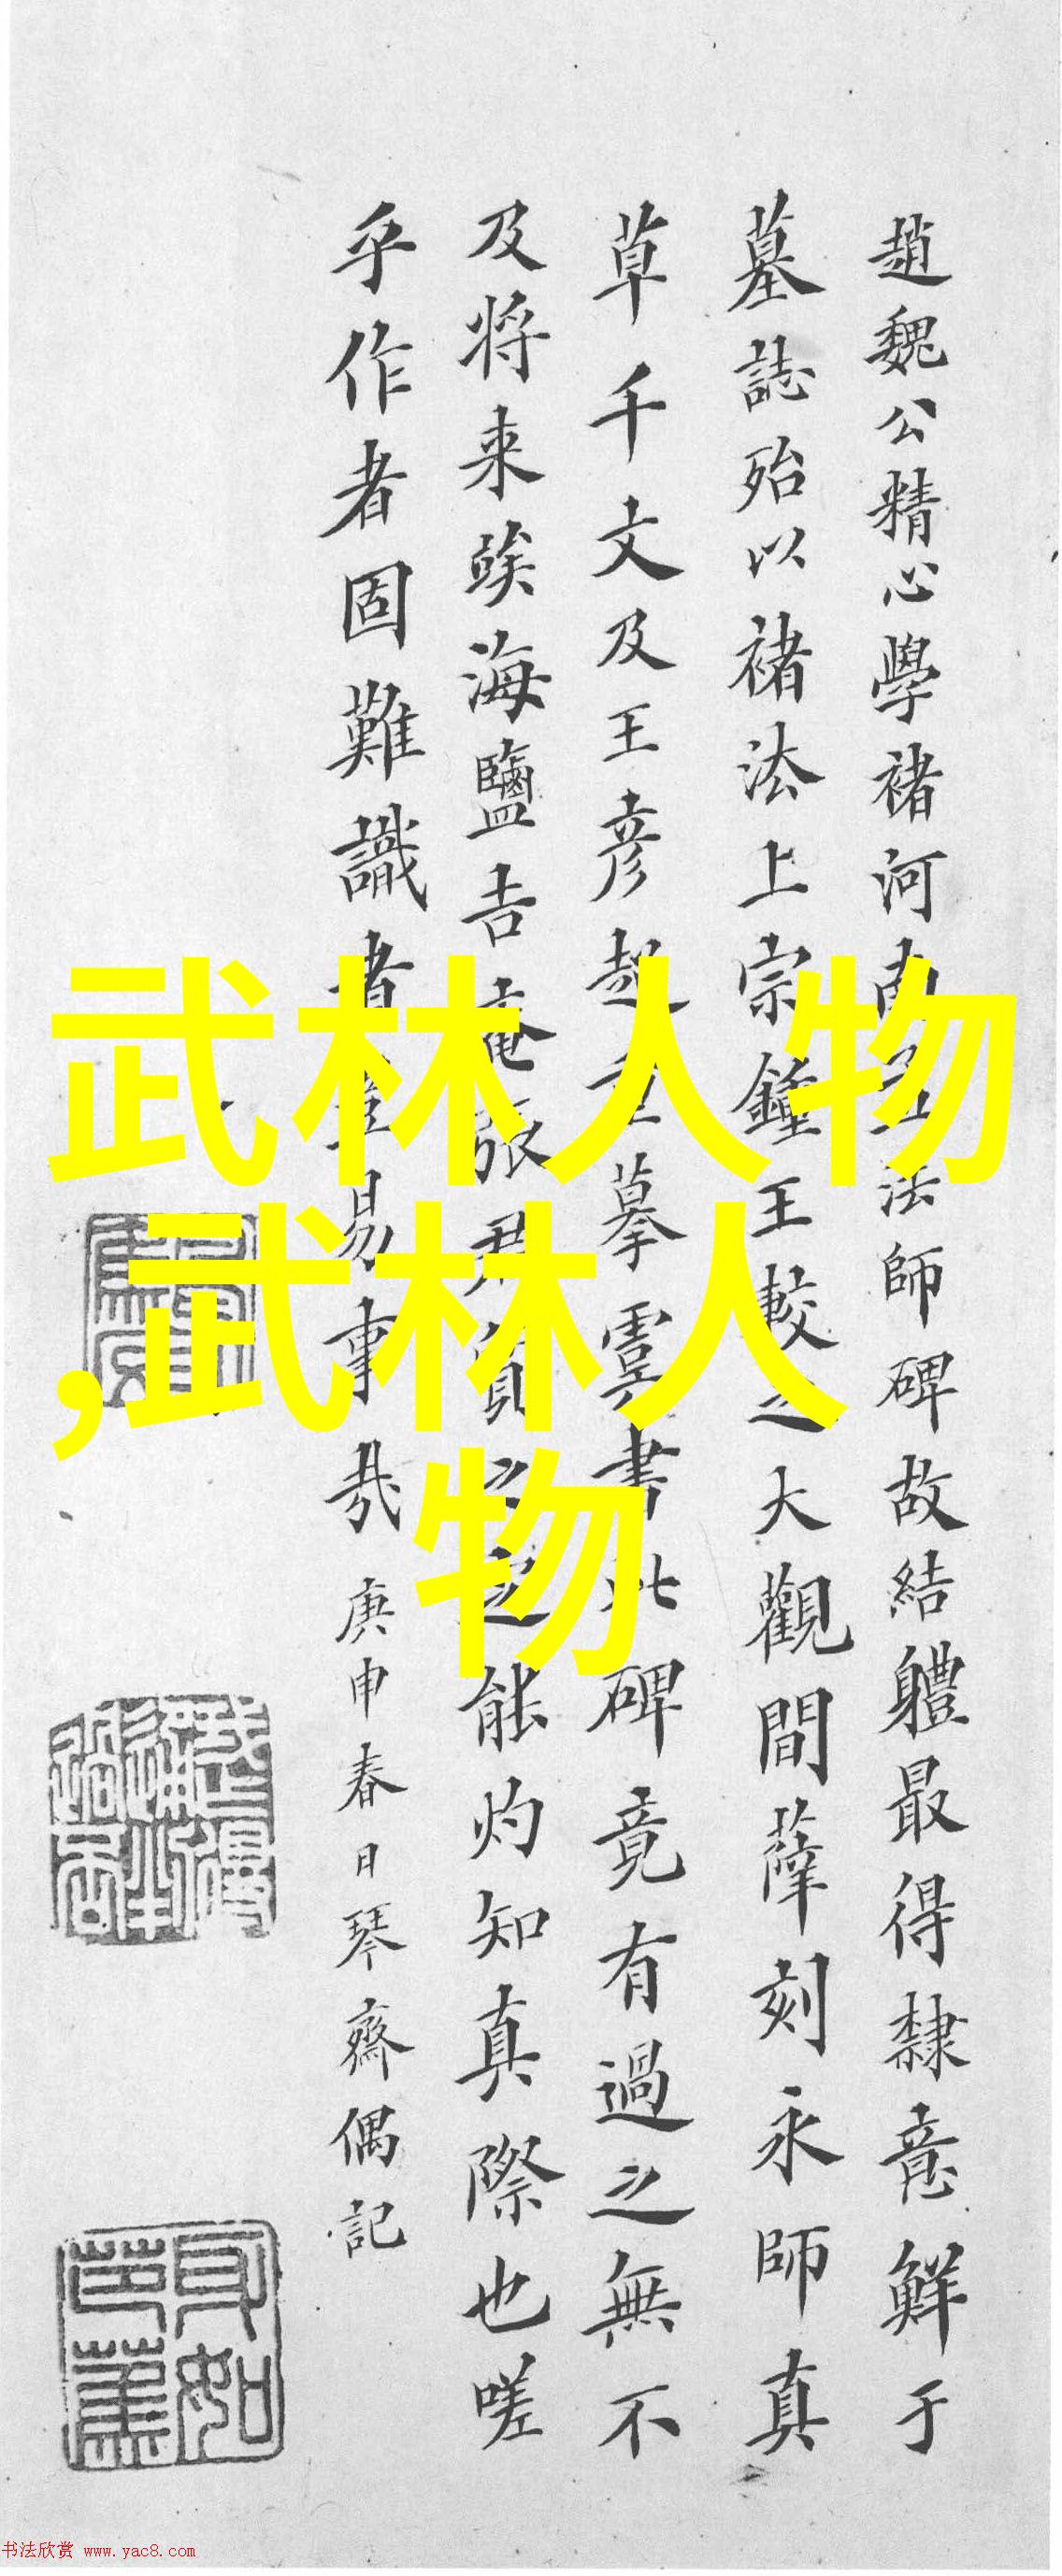 趙魏公精心學褚河南孟法師碑故結軆最得隸意鮮于
墓誌殆以褚法上宗鍾王較之大觀間薛刻永師真
草千文及王彦超重摹虞書此碑竟有過之無不
及将来竢海鹽吉庵張君質之之能灼知真際也嗟
乎作者固難識者豈易事哉庚申春日琴齋偶記
武林人物
,武林人
物
书法欣赏 www.yac8.com